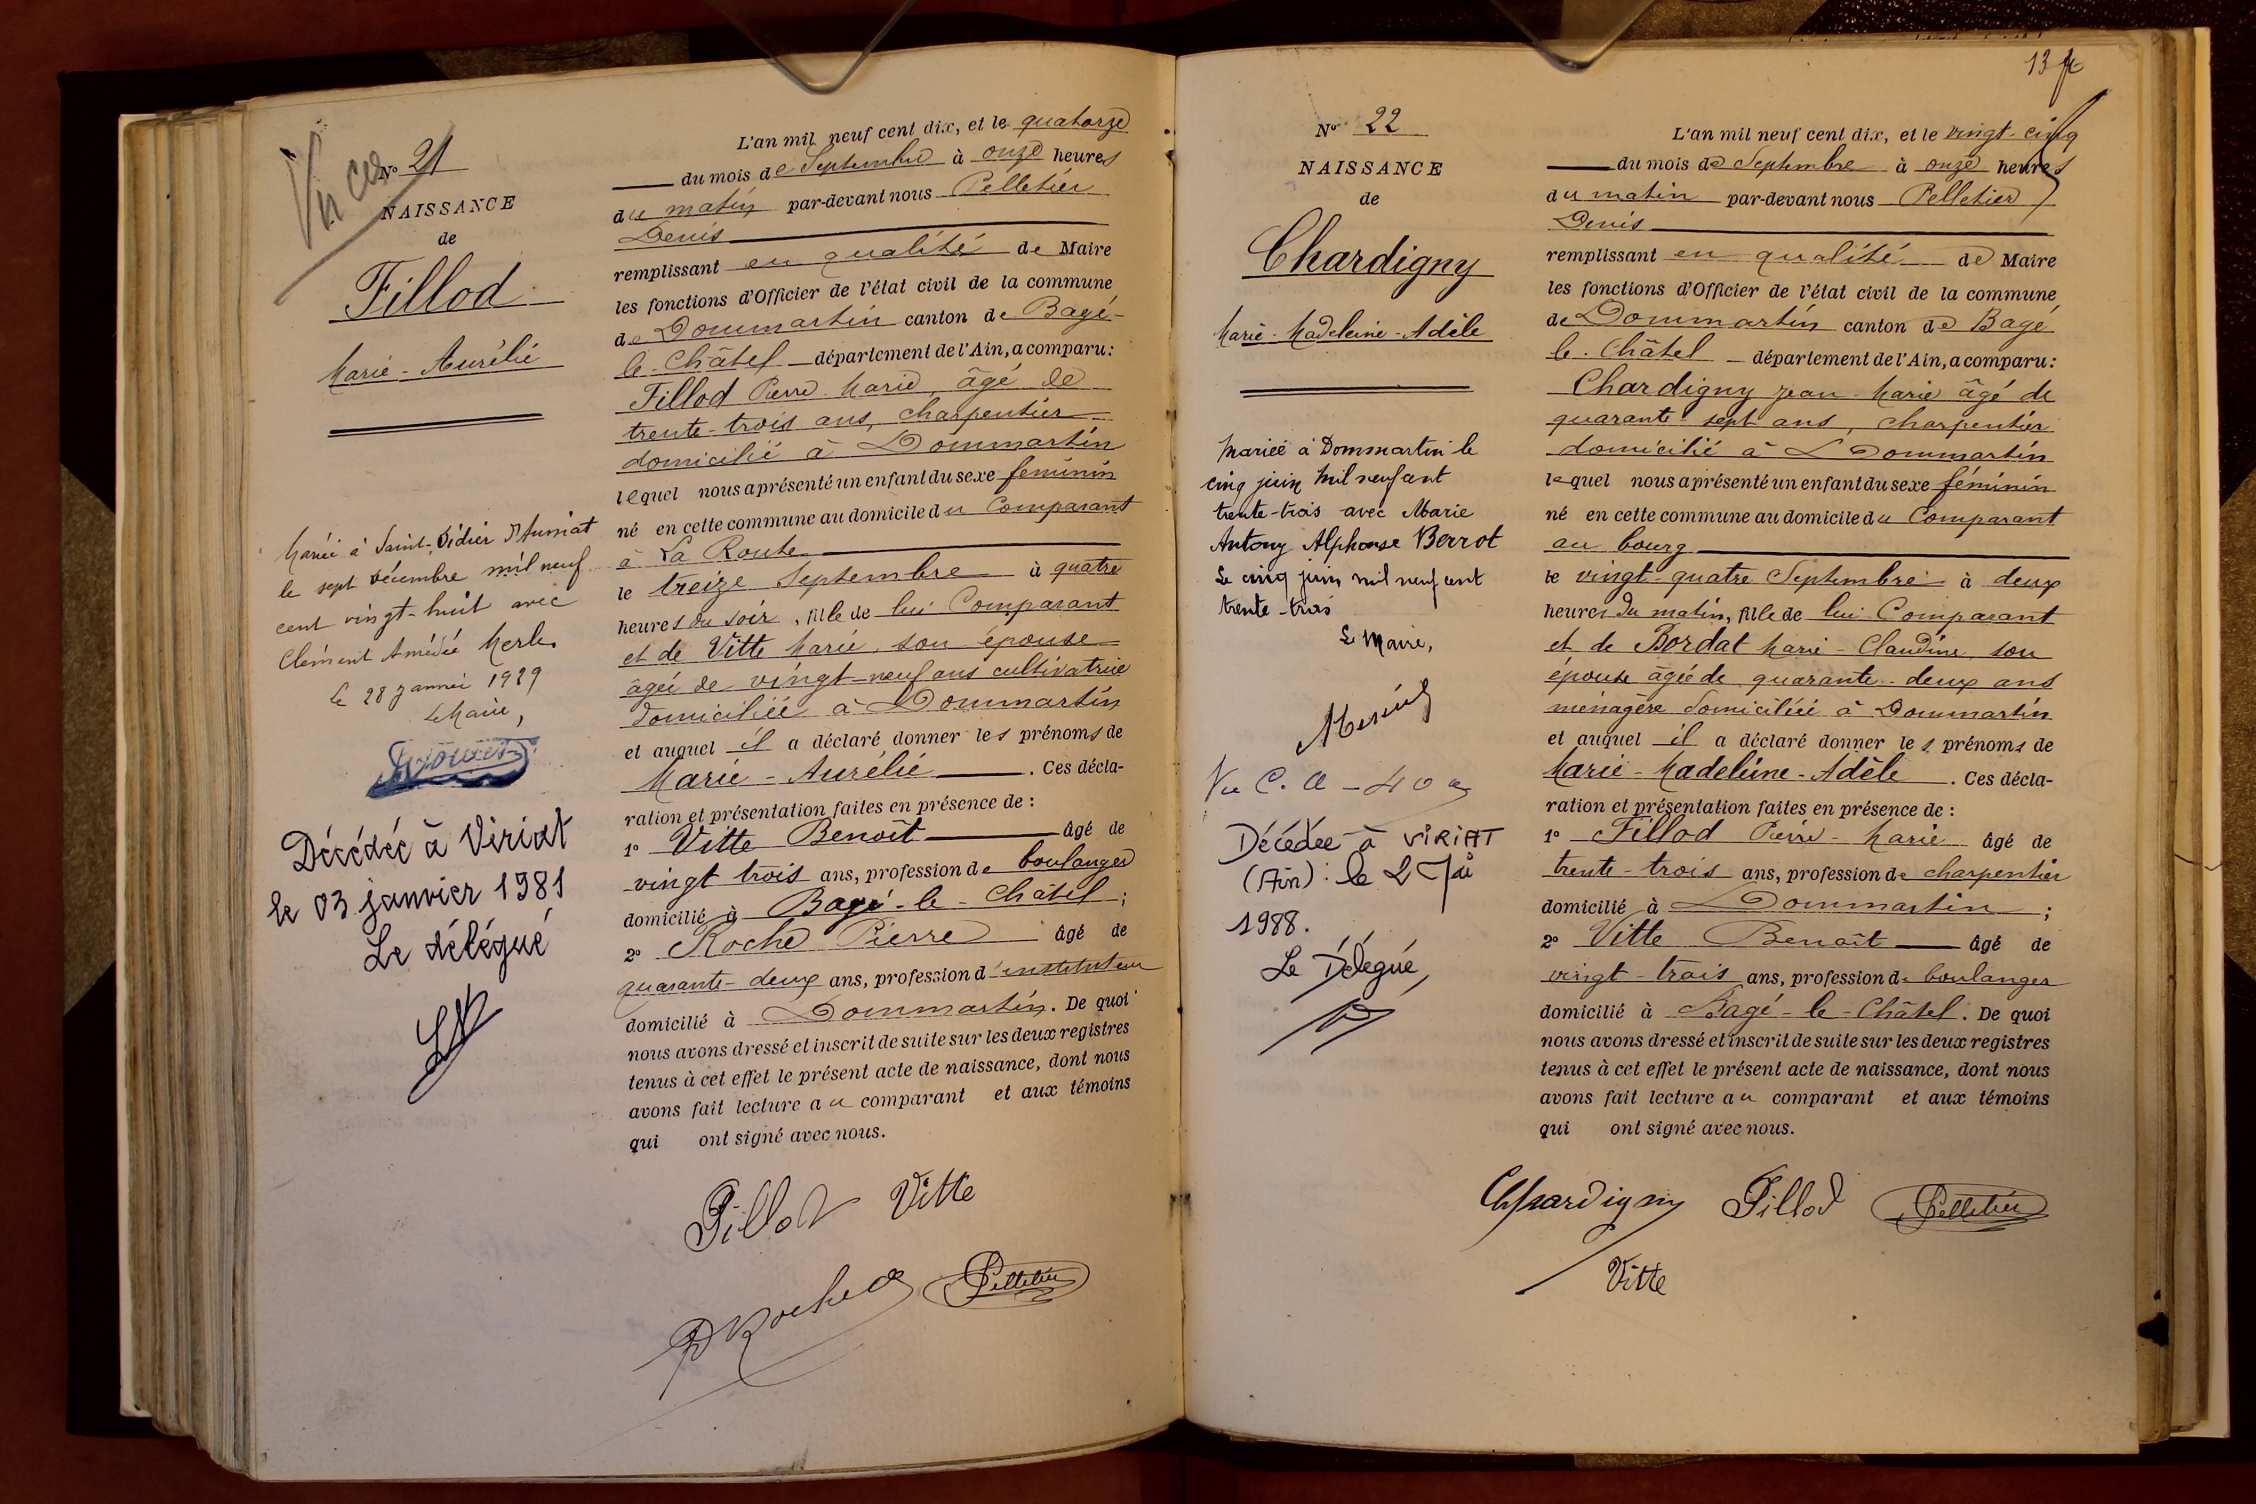 Vu
N° 21
NAISSANCE
de
Fillod
Marie - Aurélie
Mariée à Saint-Didier d'Aussiat
le sept Décembre mil neuf
cent vingt-huit avec
Clément Amédée Merle
le 28 Janvier 1929
Le Maire,
Décédée à Viriat
le 03 janvier 1981
Le délégué
L'an mil neuf cent dix, et le quatorze
du mois de Septembre à onze heures
du matin par-devant nous Pelletier
Denis
remplissant en qualité de Maire
les fonctions d'Officier de l'état civil de la commune
de Dommartin canton de Bagé-
le-Châtel département de l'Ain, a comparu:
Fillod Pierre Marie âgé de
trente-trois ans, charpentier
domicilié à Dommartin
lequel nous a présenté un enfant du sexe féminin
né en cette commune au domicile du Comparant
à La Route
le treize Septembre à quatre
heures du soir, fille de lui Comparant
et de Vitte Marie, son épouse
âgée de vingt-neuf ans cultivatrice
domiciliée à Dommartin
et auquel il a déclaré donner les prénoms de
Marie - Aurélie. Ces décla-
ration et présentation faites en présence de :
1° Vitte Benoît âgé de
vingt trois ans, profession de boulanger
domicilié à Bagé-le-Châtel ;
2° Roche Pierre âgé de
quarante-deux ans, profession d'instituteur
domicilié à Dommartin. De quoi
nous avons dressé et inscrit de suite sur les deux registres
tenus à cet effet le présent acte de naissance, dont nous
avons fait lecture au comparant et aux témoins
qui ont signé avec nous.
Fillod Vitte
P Roche Pelletier
13
N° 22
NAISSANCE
de
Chardigny
Marie - Madeleine - Adèle
Mariée à Dommartin le
cinq juin mil neuf cent
trente-trois avec Marie
Antony Alphonse Berrot
Le cinq juin mil neuf cent
trente-trois
Le Maire,
Vu C. A - 40
Décédée à VIRIAT
(Ain) : le 2
1988.
Le Délégué,
L'an mil neuf cent dix, et le vingt cinq
du mois de Septembre à onze heures
du matin par-devant nous Pelletier
Denis
remplissant en qualité de Maire
les fonctions d'Officier de l'état civil de la commune
de Dommartin canton de Bagé
le-Châtel département de l'Ain, a comparu:
Chardigny Jean-Marie âgé de
quarante-sept ans, charpentier
domicilié à Dommartin
lequel nous a présenté un enfant du sexe féminin
né en cette commune au domicile du Comparant
au bourg
le vingt-quatre Septembre à deux
heures du matin, fille de lui Comparant
et de Bordat Marie-Claudine, son
épouse âgée de quarante-deux ans
ménagère domiciliée à Dommartin
et auquel il a déclaré donner les prénoms de
Marie-Madeleine-Adèle. Ces décla-
ration et présentation faites en présence de :
1° Fillod Pierre-Marie âgé de
trente-trois ans, profession de charpentier
domicilié à Dommartin ;
2° Vitte Benoît âgé de
vingt-trois ans, profession de boulanger
domicilié à Bagé-le-Châtel. De quoi
nous avons dressé et inscrit de suite sur les deux registres
tenus à cet effet le présent acte de naissance, dont nous
avons fait lecture au comparant et aux témoins
qui ont signé avec nous.
Chardigny Fillod Pelletier
Vitte